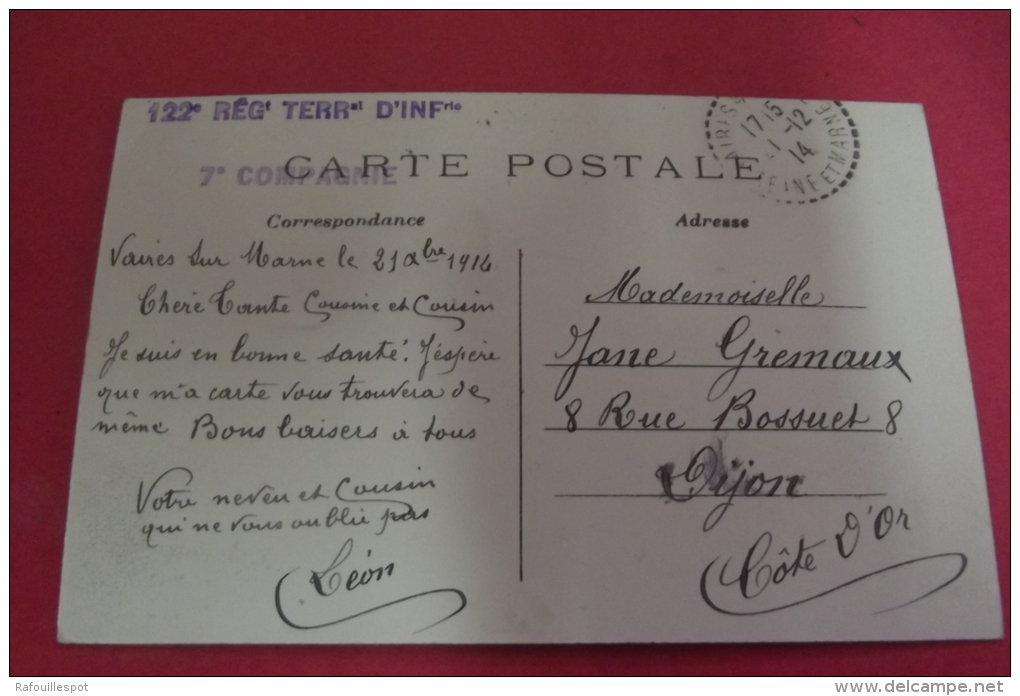 122e RÉGt TERRal D'INFrie
7e COMPAGNIE
CARTE POSTALE
17 15
21 -12
14
SEINE ET MARNE
Correspondance
Vaires Sur Marne le 21 Xbre 1914
Chère Tante Cousine et Cousin
Je suis en bonne santé. J'éspère
que m'a carte vous trouvera de
même Bons baisers à tous
Votre neveu et Cousin
qui ne vous oublie pas
Léon
Adresse
Mademoiselle
Jane Grémaux
8 Rue Bossuet 8
Dijon
Côte D'Or
Rafouillespot
delcampe.net